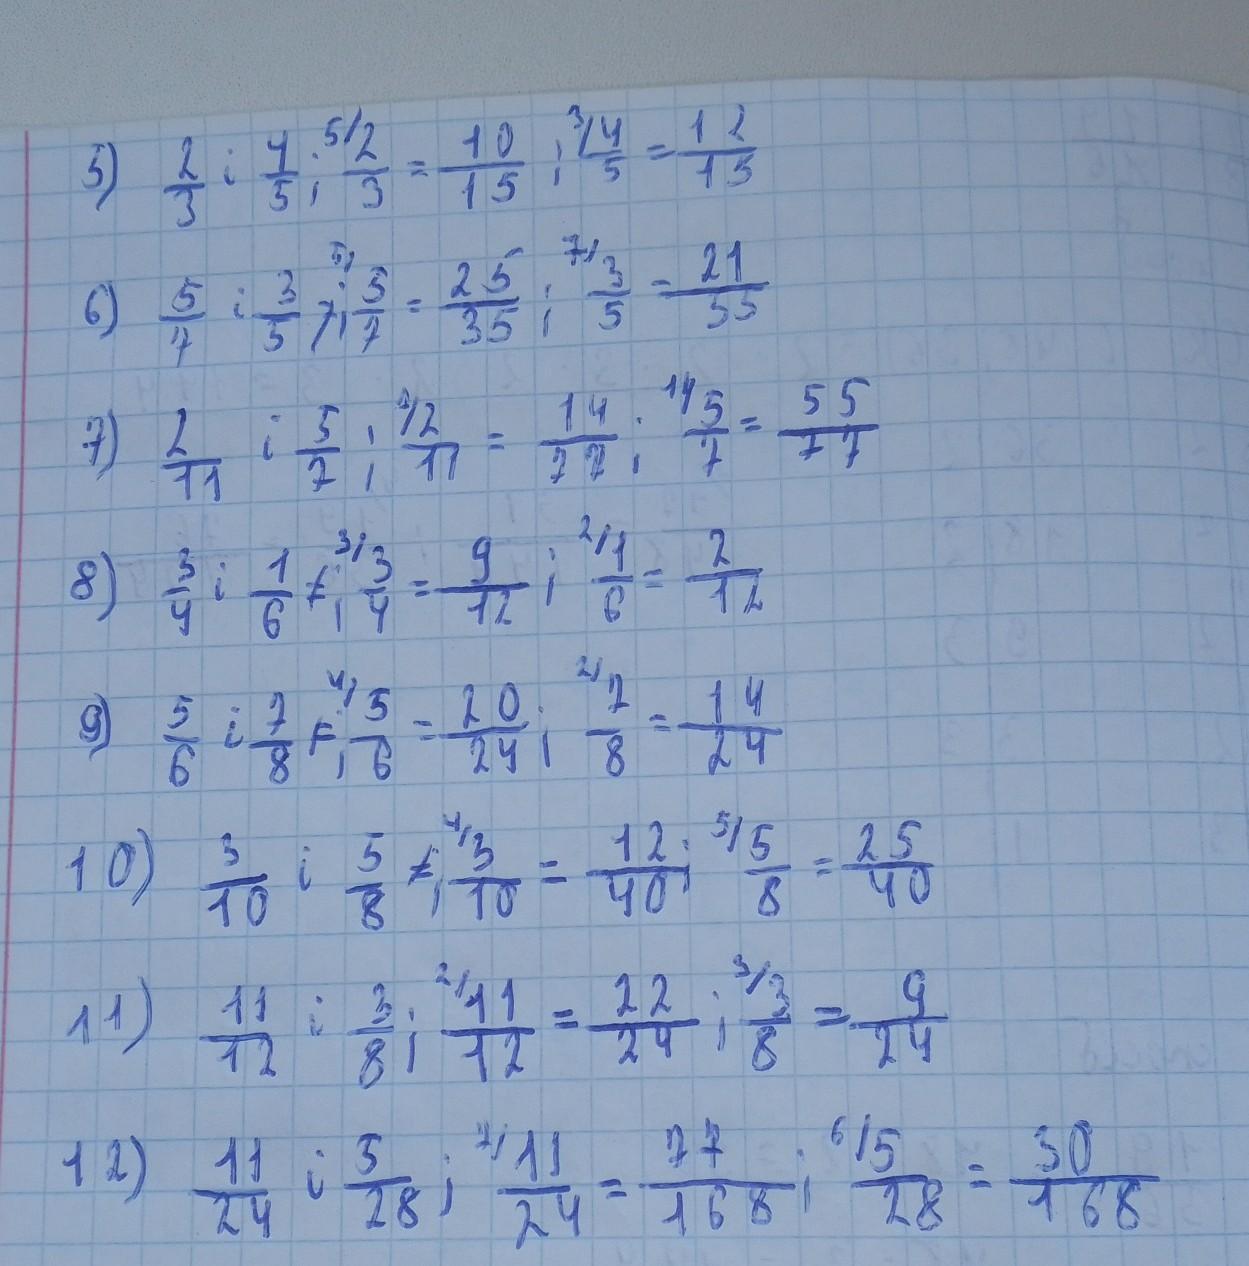 5) 2/3 і 4/5; 5/ 2/3 = 10/15; 3/ 4/5 = 12/15
6) 5/7 і 3/5; 5/ 5/7 = 25/35; 7/ 3/5 = 21/35
7) 2/11 і 5/7; 7/ 2/11 = 14/77; 11/ 5/7 = 55/77
8) 3/4 і 1/6; 3/ 3/4 = 9/12; 2/ 1/6 = 2/12
9) 5/6 і 7/8; 4/ 5/6 = 20/24; 2/ 7/8 = 14/24
10) 3/10 і 5/8; 4/ 3/10 = 12/40; 5/ 5/8 = 25/40
11) 11/12 і 3/8; 2/ 11/12 = 22/24; 3/ 3/8 = 9/24
12) 11/24 і 5/28; 7/ 11/24 = 77/168; 6/ 5/28 = 30/168